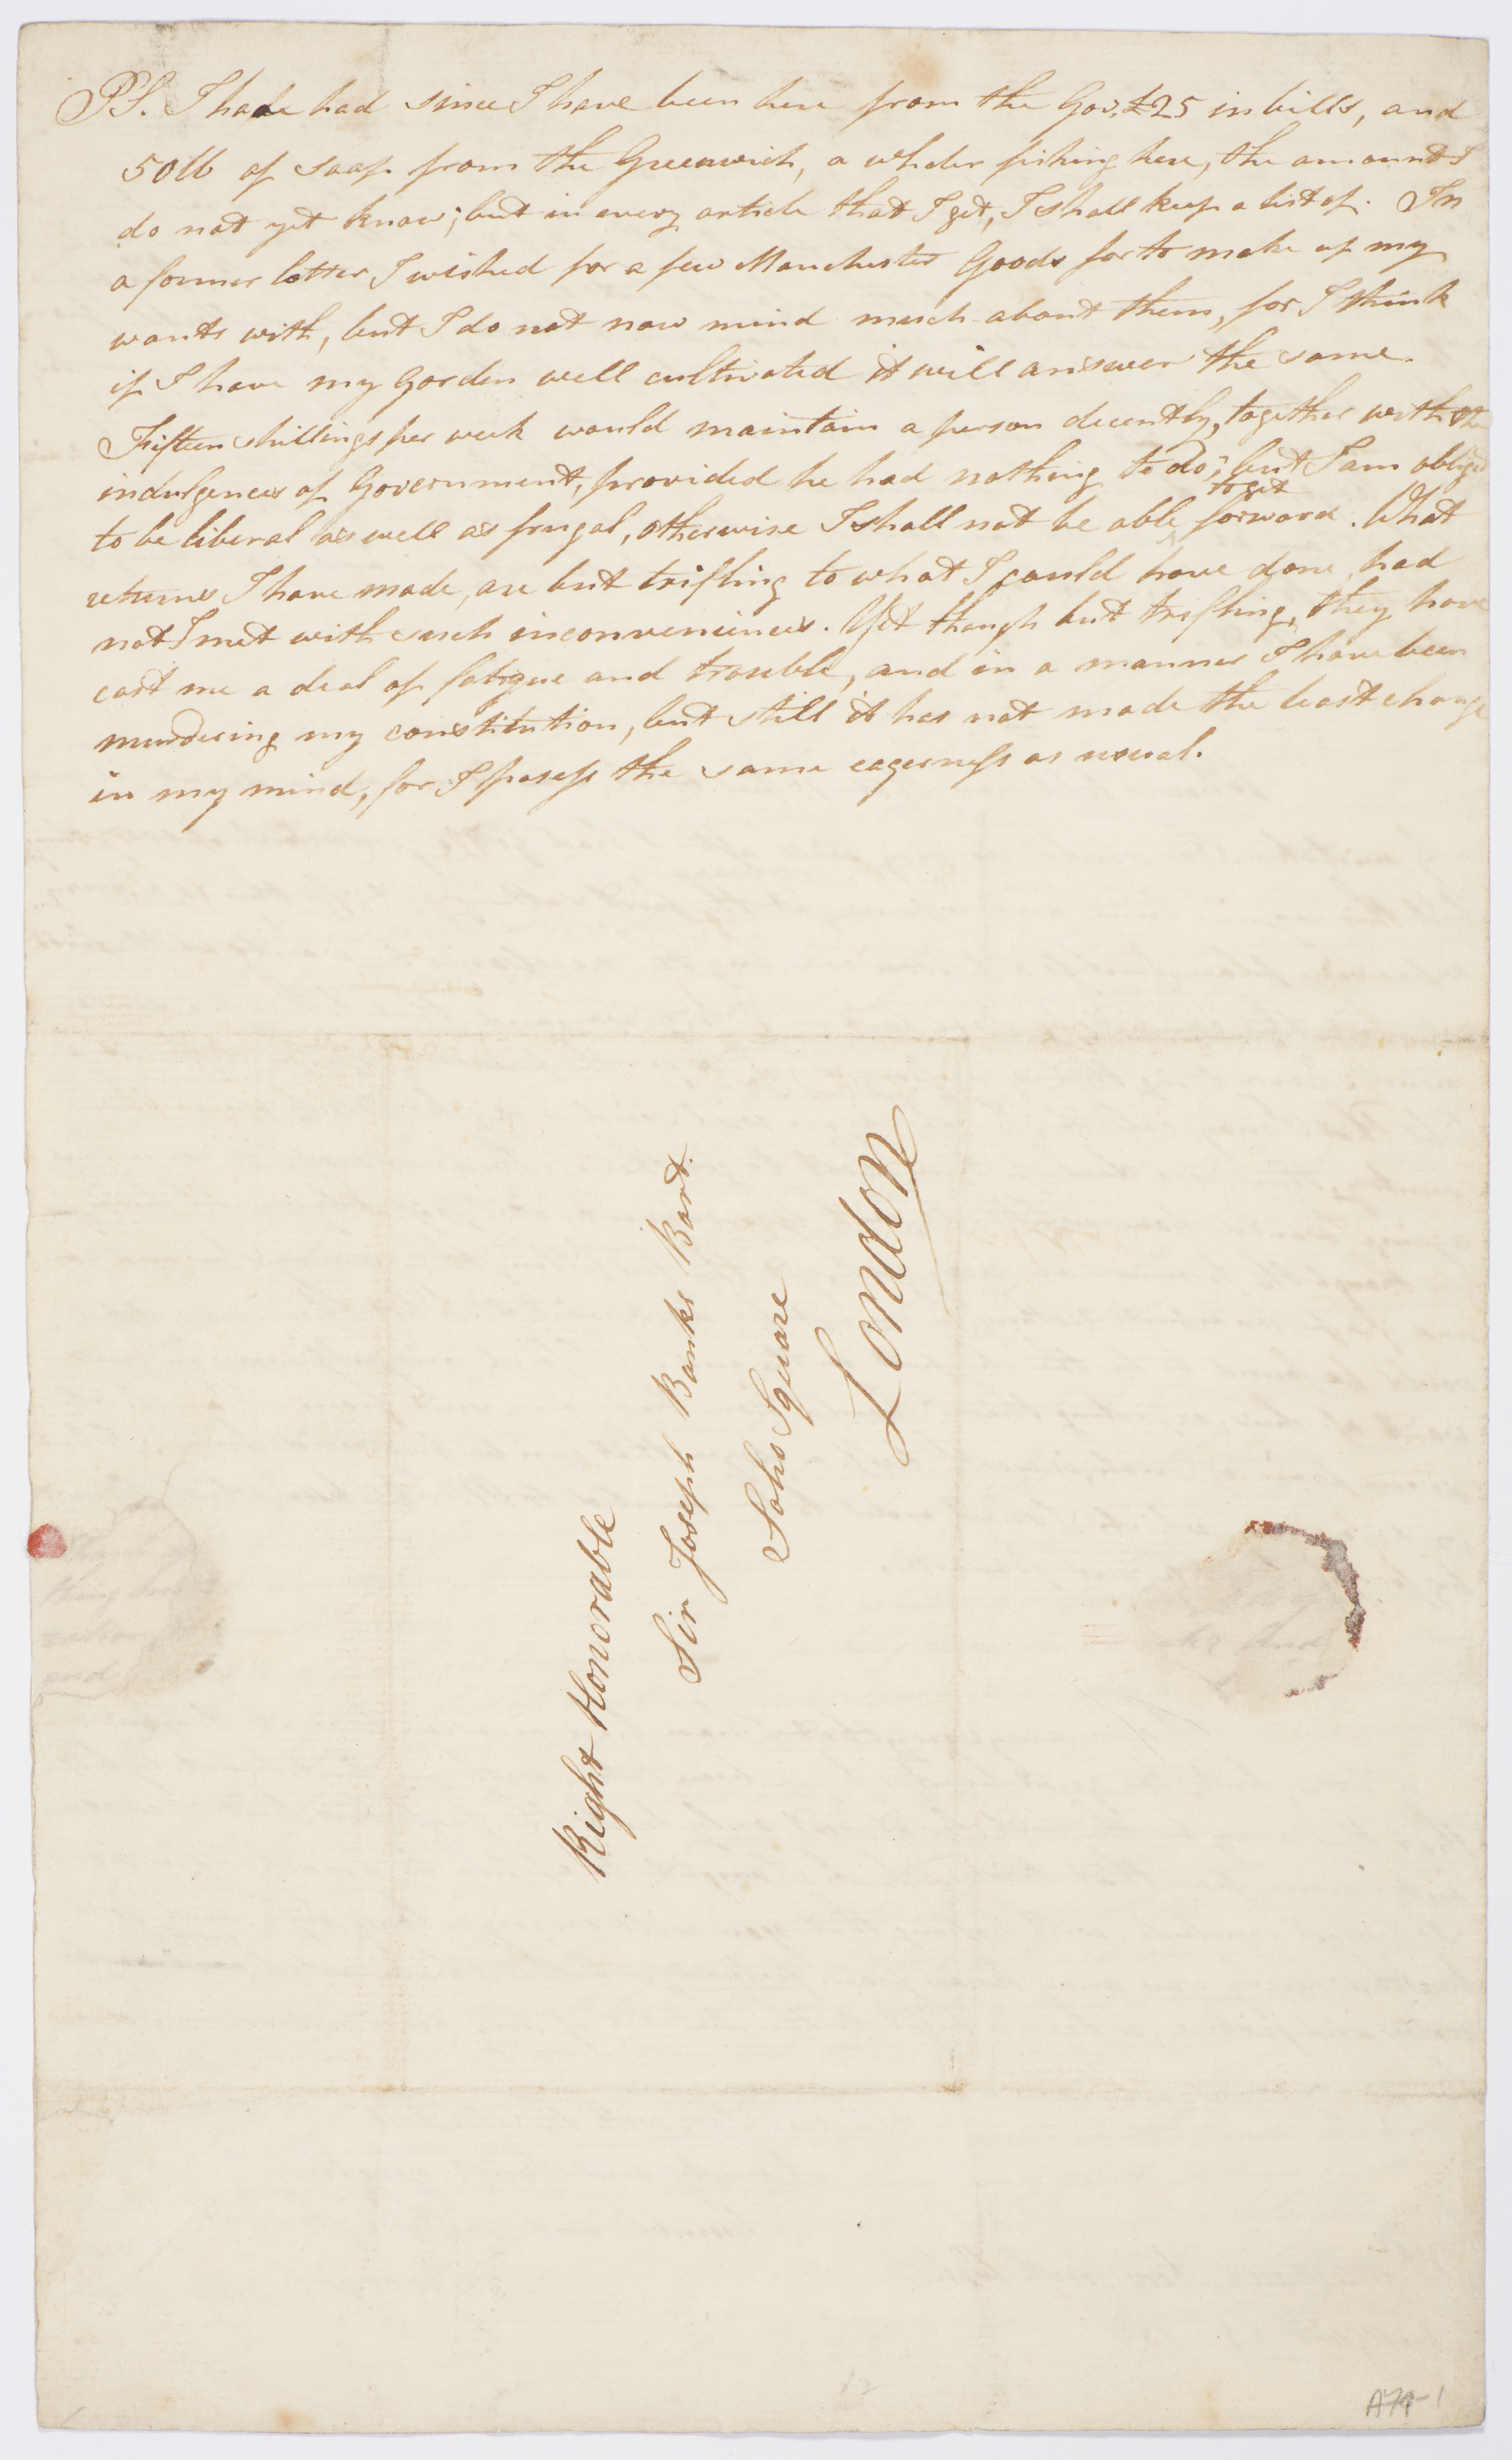 PS. I have had since I have been here from the Gov. £25 in bills, and
50 lb of soap from the Greenwich, a whaler fishing here, the amount I
do not yet know; but in every article that I get, I shall keep a list of. In
a former letter I wished for a few Manchester Goods for to make up my
wants with, but I do not now mind much about them, for I think
if I have my Garden well cultivated it will answer the same.
Fifteen shillings per week would maintain a person decently, together with the
indulgences of Government, provided he had nothing to do; but I am obliged
to be liberal as well as frugal, otherwise I shall not be able to get forward. What
returns I have made, are but trifling to what I could have done, had
not I met with such inconveniences. Yet though but trifling, they have
cost me a deal of fatigue and trouble, and in a manner I have been
murdering my constitution, but still it has not made the least change
in my mind, for I posess the same eagerness as usual.
Right Honorable
Sir Joseph Banks Bart.
Soho Square
London
A79-1